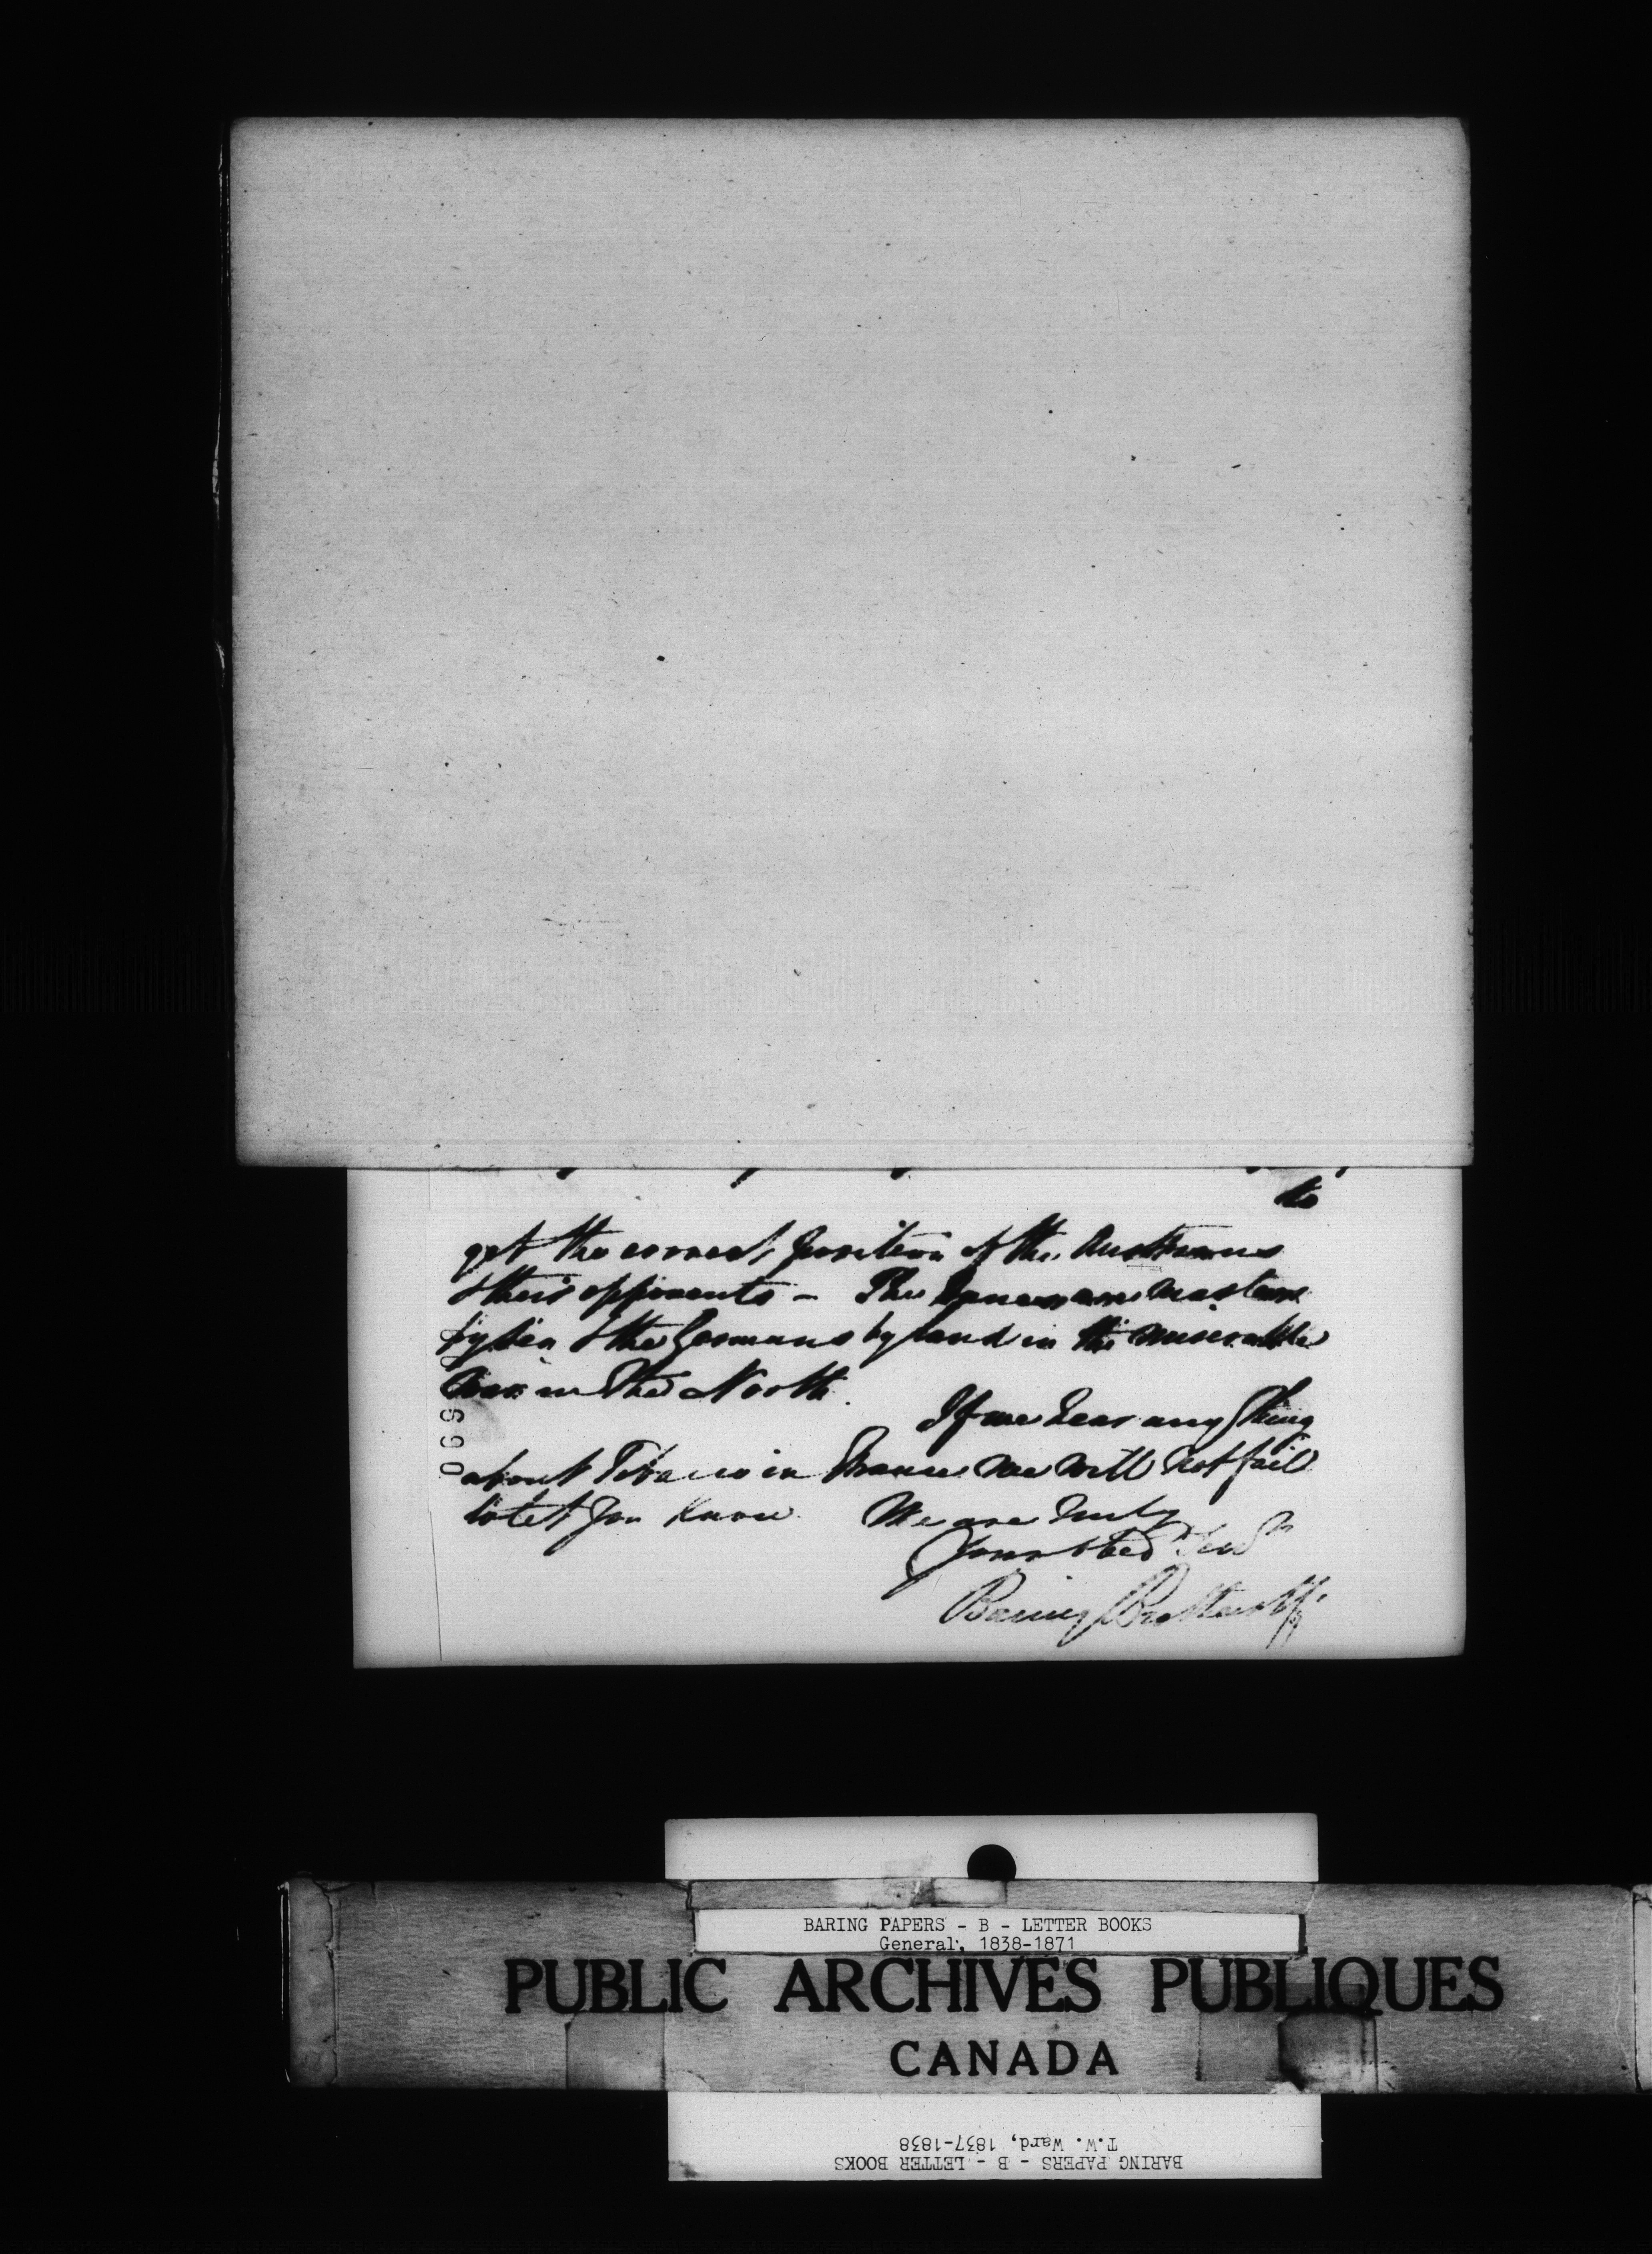 to
get the correct position of the Austrians
& their opponents - The Danes are masters
by sea & the Germans by land in the miserable
war in the North.
If we hear any thing
about Tobacco in France we will not fail
to let you know. We are truly
Your obed Serv
Baring Brothers & Co
BARING PAPERS - B - LETTER BOOKS
General, 1838-1871
PUBLIC ARCHIVES PUBLIQUES
CANADA
BARING PAPERS - B - LETTER BOOKS
T.W. Ward, 1837-1838